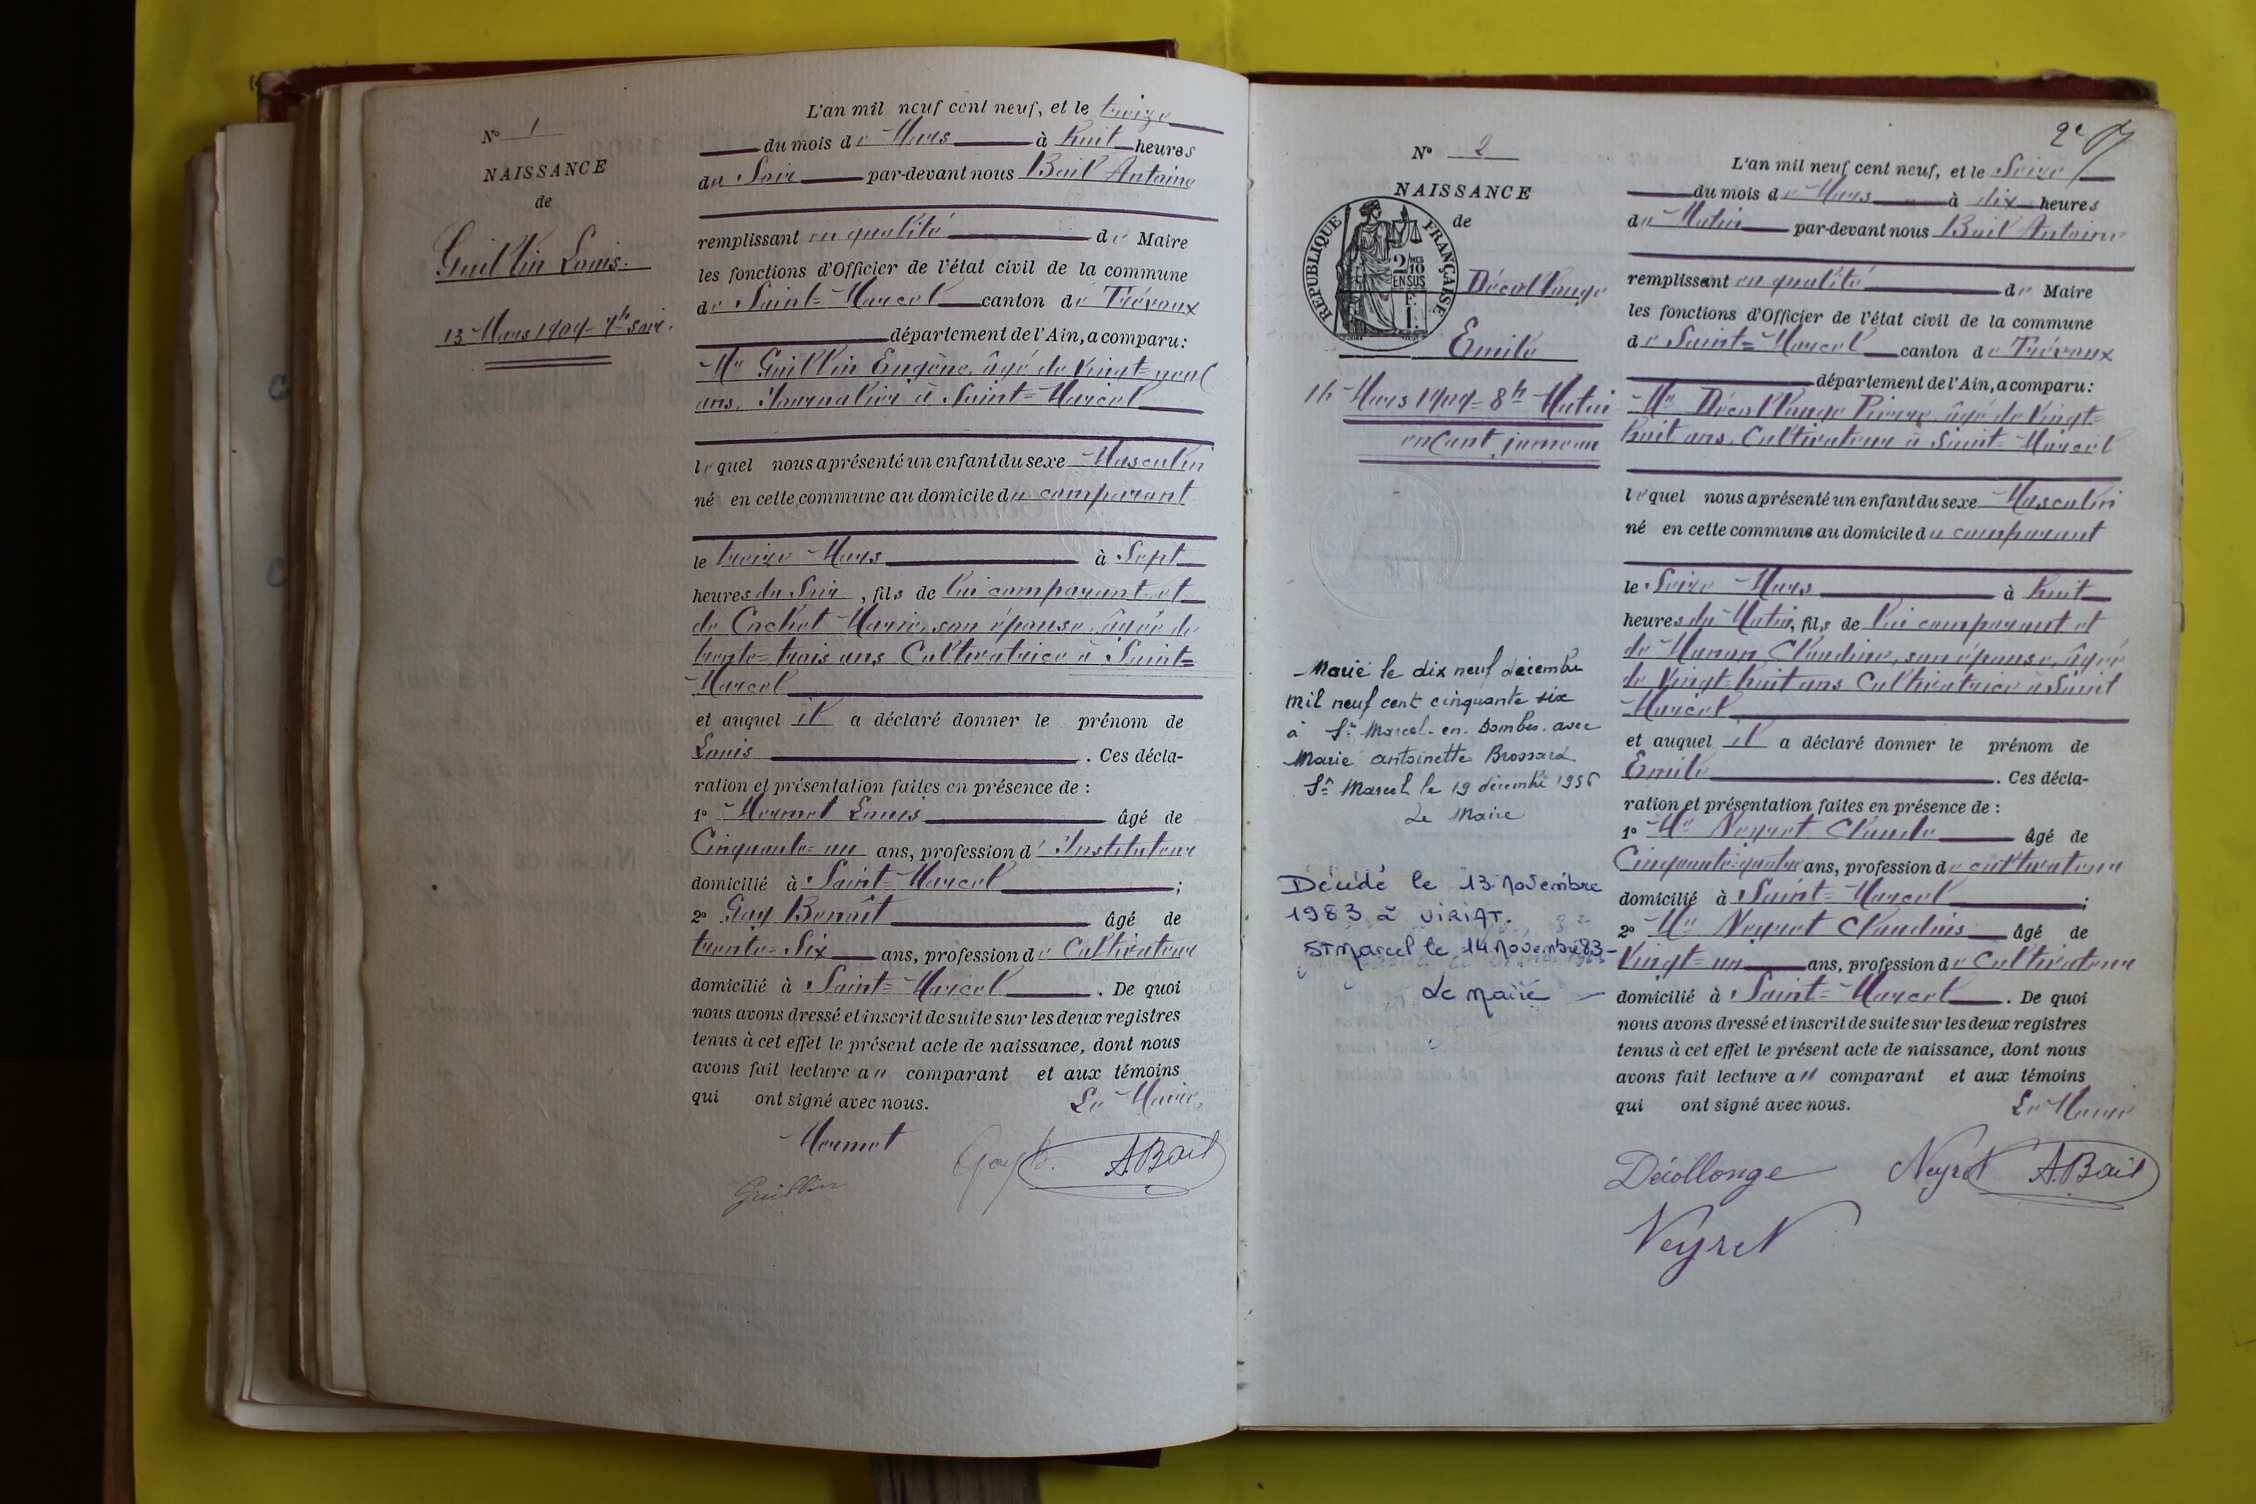 N° 1
NAISSANCE
de
Guillin Louis.
13 Mars 1909 - 7h soir.
L'an mil neuf cent neuf, et le treize
du mois de Mars à huit heures
du Soir par-devant nous Bail Antoine
remplissant en qualité de Maire
les fonctions d'Officier de l'état civil de la commune
de Saint-Marcel canton de Trévoux
département de l'Ain, a comparu:
Mr Guillin Eugène, âgé de vingt-neuf
ans, Journalier à Saint-Marcel
lequel nous a présenté un enfant du sexe Masculin
né en cette commune au domicile du comparant
le treize Mars à Sept
heures du Soir, fils de lui comparant et
de Cachet Marie, son épouse, âgée de
trente-trois ans Cultivatrice à Saint-
Marcel
et auquel il a déclaré donner le prénom de
Louis . Ces décla-
ration et présentation faites en présence de :
1° Mermet Louis âgé de
Cinquante-un ans, profession d'Instituteur
domicilié à Saint-Marcel ;
2° Gay Benoît âgé de
trente-Six ans, profession de Cultivateur
domicilié à Saint-Marcel . De quoi
nous avons dressé et inscrit de suite sur les deux registres
tenus à cet effet le présent acte de naissance, dont nous
avons fait lecture au comparant et aux témoins
qui ont signé avec nous.
Le Maire,
Mermet
Guillin
Gay B.
A Bail
2e
N° 2
NAISSANCE
de
RÉPUBLIQUE FRANÇAISE
2/10 EN SUS
Décollonge
Emile
16 Mars 1909 - 8h Matin
enfant jumeau
Marié le dix neuf décembre
mil neuf cent cinquante six
à St Marcel-en-Dombes avec
Marie Antoinette Brossard
St Marcel le 19 décembre 1956
Le Maire
Décédé le 13 Novembre
1983 à VIRIAT.
ST Marcel le 14 Novembre 83 -
Le Maire
L'an mil neuf cent neuf, et le Seize
du mois de Mars à dix heures
du Matin par-devant nous Bail Antoine
remplissant en qualité de Maire
les fonctions d'Officier de l'état civil de la commune
de Saint-Marcel canton de Trévoux
département de l'Ain, a comparu:
Mr Décollonge Pierre, âgé de vingt-
huit ans, Cultivateur à Saint-Marcel
lequel nous a présenté un enfant du sexe Masculin
né en cette commune au domicile du comparant
le Seize Mars à huit
heures du Matin, fils de lui comparant et
de Claudine, son épouse, âgée
de Vingt-huit ans Cultivatrice à Saint
Marcel
et auquel il a déclaré donner le prénom de
Emile . Ces décla-
ration et présentation faites en présence de :
1° Mr Neyret Claude âgé de
Cinquante-quatre ans, profession de cultivateur
domicilié à Saint-Marcel ;
2° Mr Neyret Claudius âgé de
Vingt-un ans, profession de Cultivateur
domicilié à Saint-Marcel . De quoi
nous avons dressé et inscrit de suite sur les deux registres
tenus à cet effet le présent acte de naissance, dont nous
avons fait lecture au comparant et aux témoins
qui ont signé avec nous.
Le Maire
Décollonge
Neyret
A. Bail
Neyret